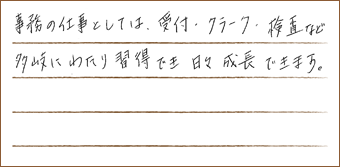 事務の仕事としては、受付・クラーク・検査など
多岐にわたり習得でき日々成長できます。